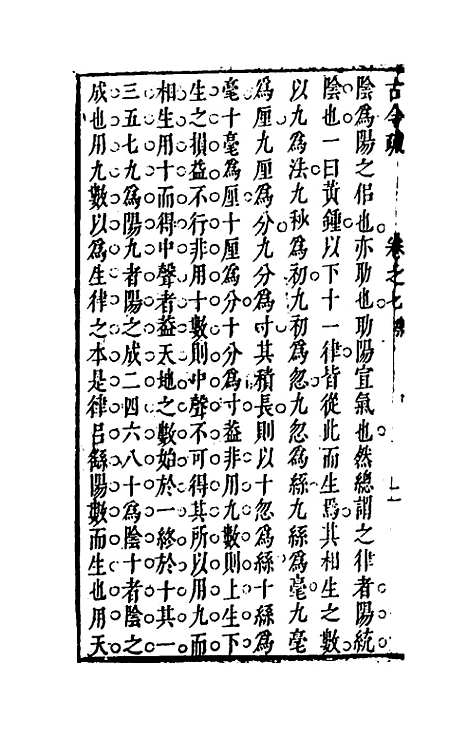 古今
卷之七
陰為陽之侶也亦助也助陽宣氣也然總謂之律者陽統
陰也一曰黃鍾以下十一律皆從此而生焉其相生之數
以九為法九秒為初九初為忽九忽為絲九絲為毫九毫
為厘九厘為分九分為寸其積長則以十忽為絲十絲為
毫十毫為厘十厘為分十分為寸葢非用九數則上生下
生之損益不行非用十數則中聲不可得其所以用九而
相生用十而得中聲者葢天地之數始於一終於十其一
三五七九為陽九者陽之成二四六八十為陰十者陰之
成也用九數以為生律之本是律呂繇陽數而生也用天